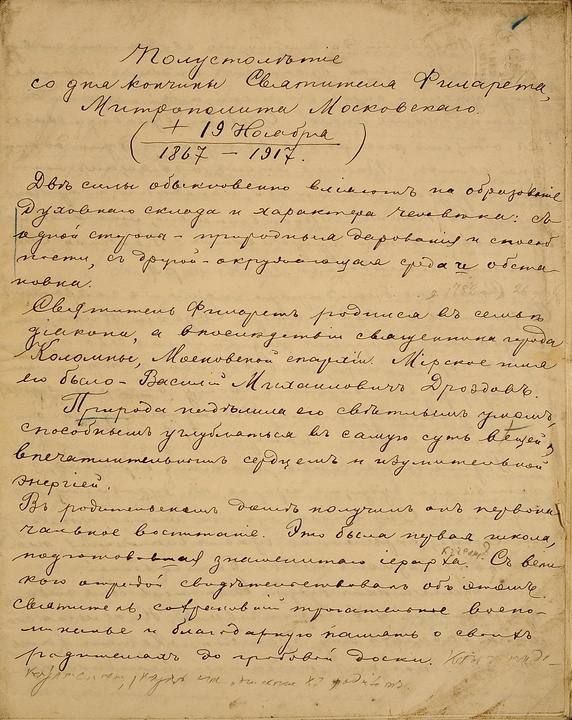 Полустолѣтіе
со дня кончины Святителя Филарета,
Митрополита Московскаго.
( † 19 Ноября )
1867 – 1917.
Двѣ силы обыкновенно вліяютъ на образованіе
духовнаго склада и характера человѣка: съ
одной стороны – природныя дарованія и способ-
ности, съ другой – окружающая среда и обста-
новка.
Святитель Филаретъ родился въ семьѣ
діакона, а впослѣдствіи священника города
Коломны, Московской епархіи. Мірское имя
его было – Василій Михаиловичъ Дроздовъ.
Природа надѣлила его свѣтлымъ умомъ,
способнымъ углубляться въ самую суть вещей,
впечатлительнымъ сердцемъ и изумительной
энергіей.
Въ родительскомъ домѣ получилъ онъ первона-
чальное воспитаніе. Это была первая школа,
знаменитаго іерарха. Съ вели-
кого отрадой свидѣтельствовалъ объ этомъ
святитель, сохранившій трогательное воспо-
минанье и благодарную память о своихъ
родителяхъ до гробовой доски.